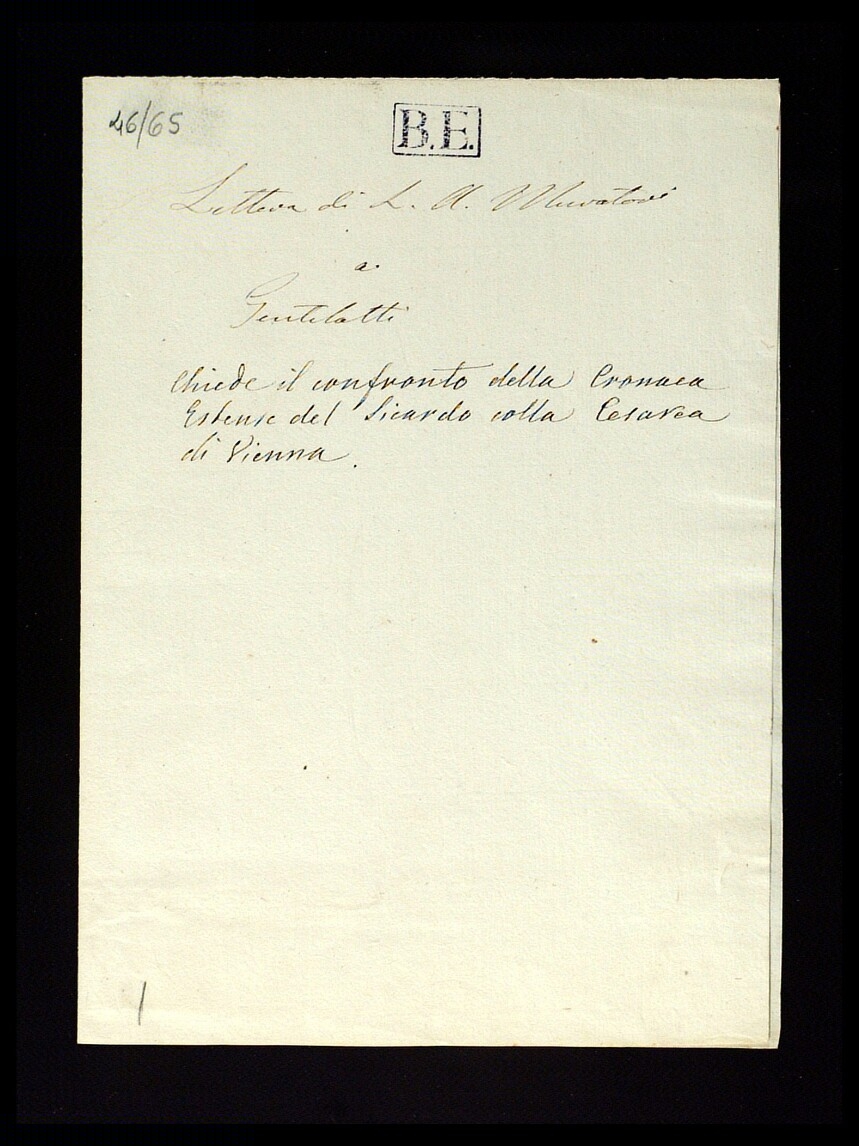 46/65
B.E.
Lettera di L. A. Muratori
a
Gentilotti
Chiede il confronto della Cronaca
Estense del Sicardo colla Cesarea
di Vienna.